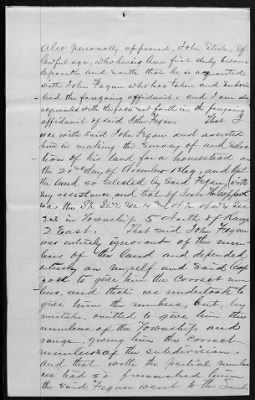 Also personally appeared, John Steele, of
lawful age, who being by me first duly sworn
deposeth and saith that he is acquainted
with John Fagan who has taken and subscri-
bed the foregoing affidavit, and I am also
acquainted with the facts set forth in the foregoing
affidavit of said John Fagan. That I
was with said John Fagan and assisted
him in making the survey of and selec-
tion of his land for a homestead on
the 21st day of November 1869, and that
the land so selected by said Fagan, with
my assistance and that of
was the
in Township 5 North of Range
2 East. That said John Fagan
was entirely ignorant of the num-
bers of the land and depended
entirely on myself and said
to give him the correct num-
bers, and that we undertook to
give him the numbers, but, by
mistake, omitted to give him the
numbers of the Township and
range, giving him the correct
numbers of the subdivisions,
and that with the partial numbers
we had so furnished him
the said Fagan went to the Land